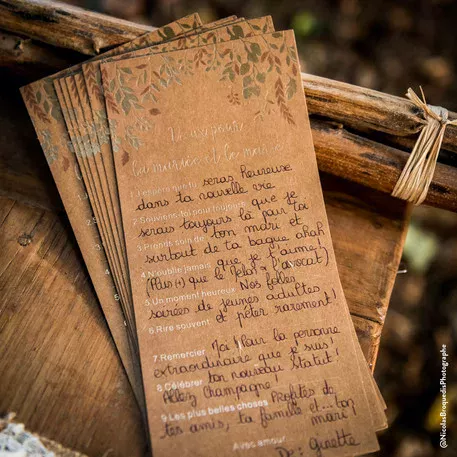 Vœux pour
la mariée et le marié
1 J'espère que tu seras heureuse
dans ta nouvelle vie
2 Souviens-toi pour toujours que je
serais toujours là pour toi
3 Prends soin de ton mari et
surtout de ta bague ahah
4 N'oublie jamais que je t'aime!
(Plus (+) que le Jelai t'avocat)
5 Un moment heureux Nos folles
soirées de jeunes adultes
6 Rire souvent et péter rarement!
7 Remercier Moi! Pour la personne
extraordinaire que je suis!
8 Célébrer ton nouveau statut!
Allez Champagne!
9 Les plus belles choses Profites de
tes amis, ta famille et... ton
mari!
Avec amour
De: Ginette
@NicolasBroquedisPhotographe